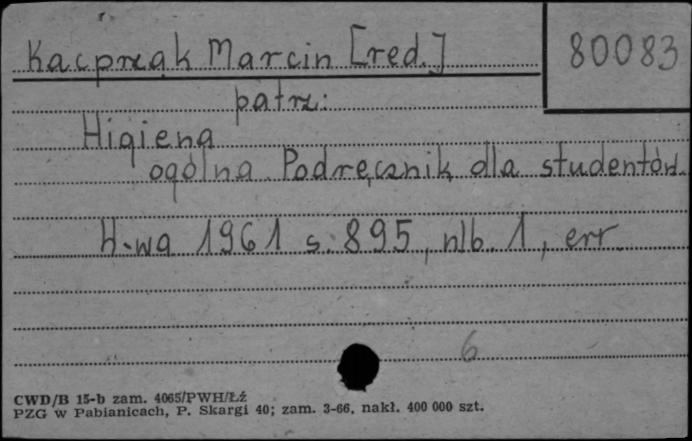 Kacprzak Marcin [red.]
80083
patrz:
Higiena
ogólna. Podręcznik dla studentów.
W-wa 1961 s. 895, nlb. 1, err.
6
CWD/B 15-b zam. 4065/PWH/Łź
PZG w Pabianicach, P. Skargi 40; zam. 3-66, nakł. 400 000 szt.